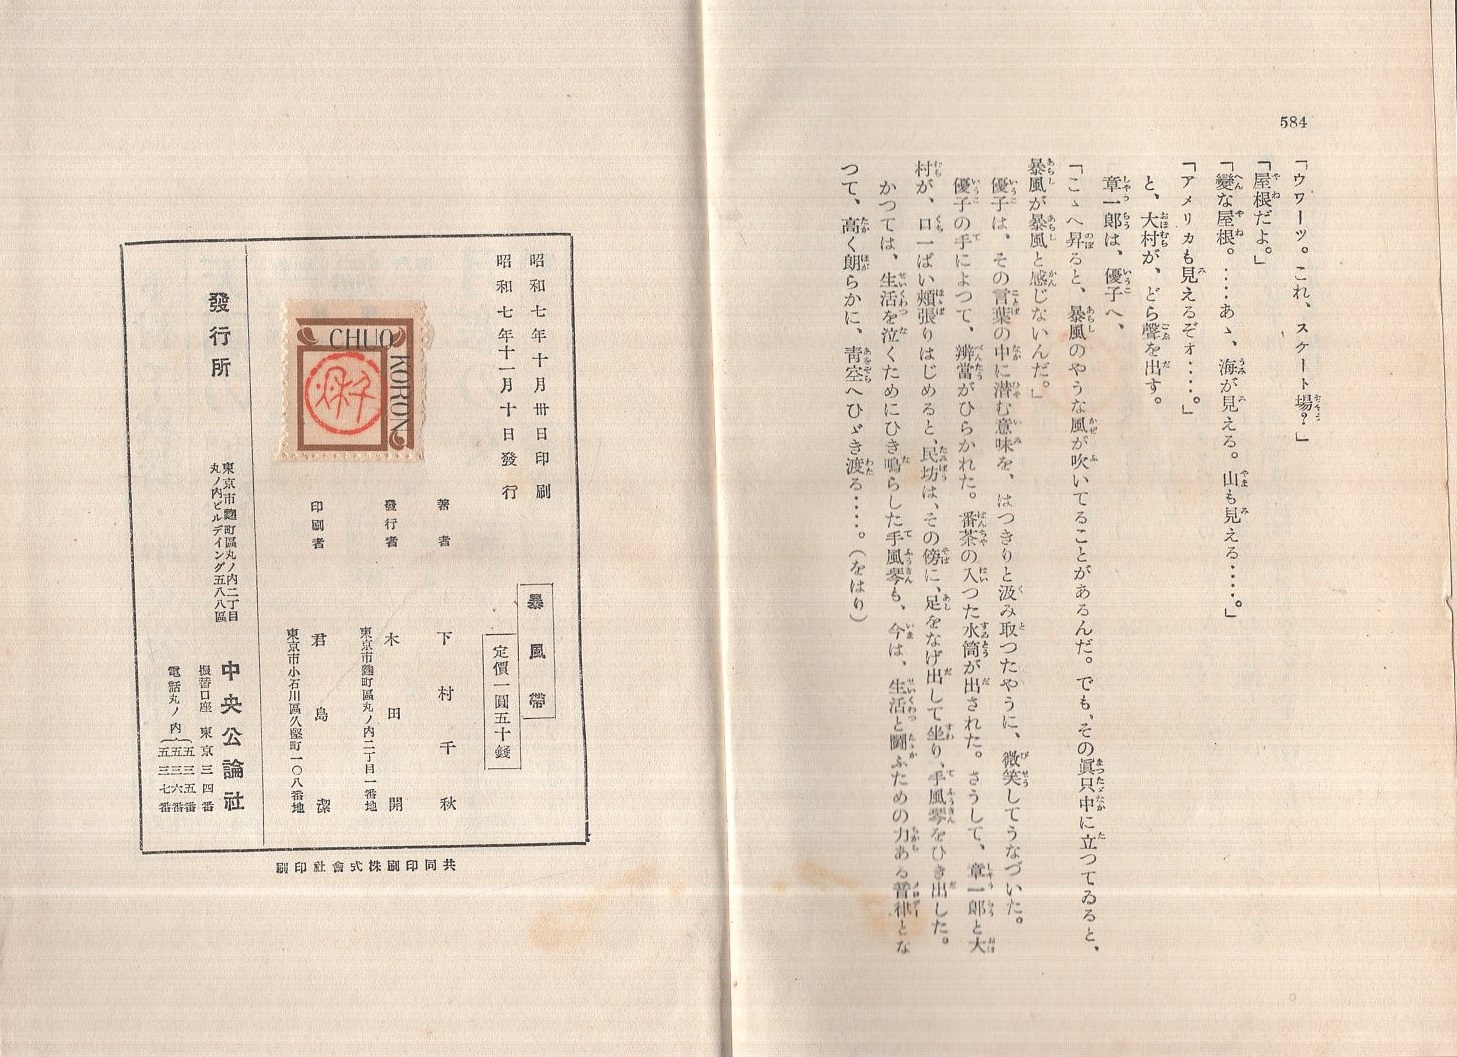 584
「ウワーツ。これ、スケート場？」
「屋根だよ。」
「變な屋根。‥‥あゝ、海が見える。山も見える‥‥。」
「アメリカも見えるぞォ‥‥。」
と、大村が、どら聲を出す。
章一郎は、優子へ、
「こゝへ昇ると、暴風のやうな風が吹いてることがあるんだ。でも、その眞只中に立つてゐると、
暴風が暴風と感じないんだ。」
優子は、その言葉の中に潜む意味を、はつきりと汲み取つたやうに、微笑してうなづいた。
優子の手によつて、辨當がひらかれた。番茶の入つた水筒が出された。さうして、章一郎と大
村が、口一ぱい頰張りはじめると、民坊は、その傍に、足をなげ出して坐り、手風琴をひき出した。
かつては、生活を泣くためにひき鳴らした手風琴も、今は、生活と鬪ふための力ある音律とな
つて、高く朗らかに、靑空へひゞき渡る‥‥。（をはり）
昭和七年十月卅日印刷
昭和七年十一月十日發行
暴風帶
定價一圓五十錢
著者 下村千秋
發行者 木田開
東京市麴町區丸ノ内二丁目一番地
印刷者 君島潔
東京市小石川區久堅町一〇八番地
CHUO
KORON
發行所 中央公論社
東京市麴町區丸ノ内二丁目
丸ノ内ビルデイング五八八區
振替口座 東京三四番
電話丸ノ内
五三五番
五三六番
五三七番
共同印刷株式會社印刷